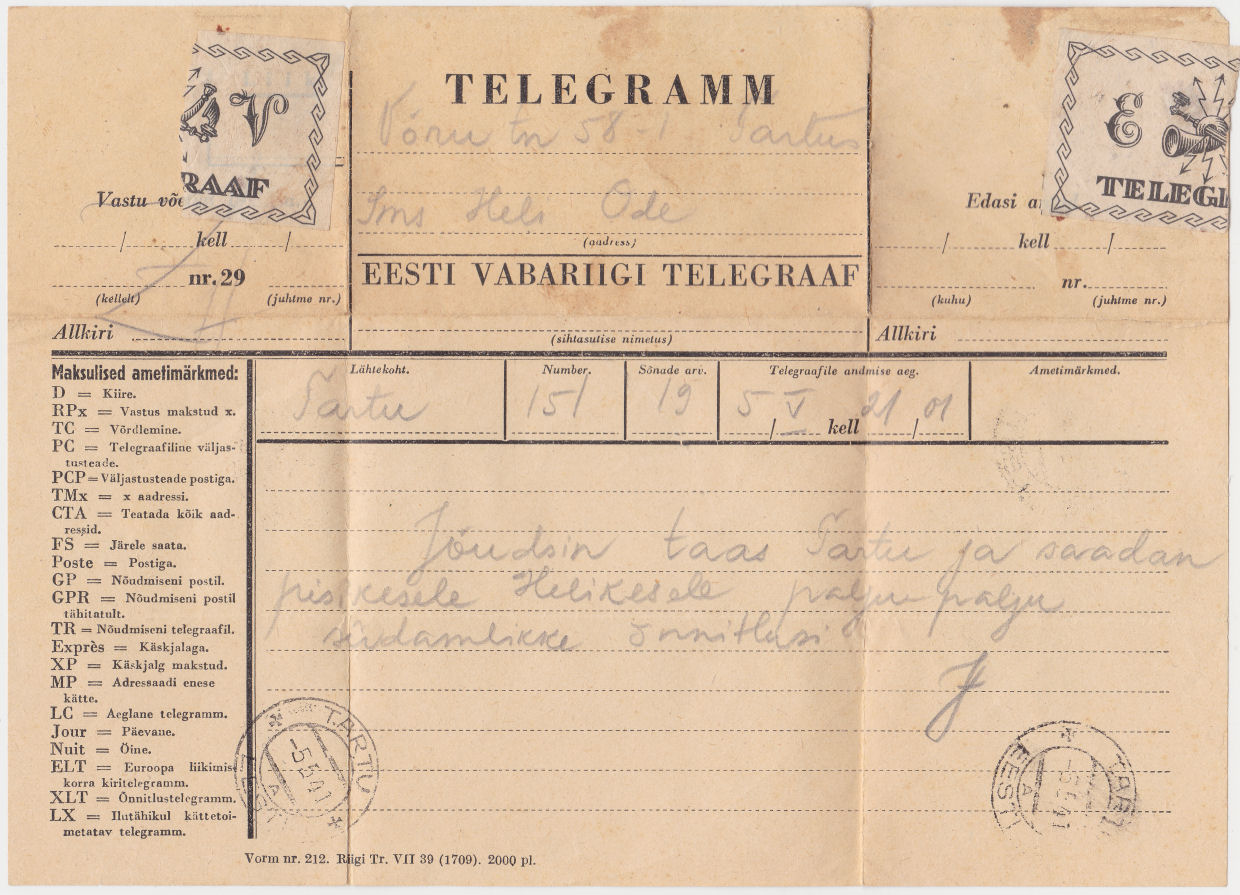 TELEGRAMM
Võru tn 58-1 Tartus
Heli Ode
(aadress)
EESTI VABARIIGI TELEGRAAF
(sihtasutise nimetus)
V
RAAF
Vastu võe
/ kell /
nr. 29
(kellelt) (juhtme nr.)
Allkiri
E
TELEG
Edasi a
/ kell /
nr.
(kuhu) (juhtme nr.)
Allkiri
Maksulised ametimärkmed:
D = Kiire.
RPx = Vastus makstud x.
TC = Võrdlemine.
PC = Telegraafiline väljas-
tusteade.
PCP = Väljastusteade postiga.
TMx = x aadressi.
CTA = Teatada kõik aad-
ressid.
FS = Järele saata.
Poste = Postiga.
GP = Nõudmiseni postil.
GPR = Nõudmiseni postil
tähitatult.
TR = Nõudmiseni telegraafil.
Exprès = Käskjalaga.
XP = Käskjalg makstud.
MP = Adressaadi enese
kätte.
LC = Aeglane telegramm.
Jour = Päevane.
Nuit = Öine.
ELT = Euroopa liikimis-
korra kiritelegramm.
XLT = Õnnitlustelegramm.
LX = Ilutähikul kättetoi-
metatav telegramm.
Lähtekoht. Number. Sõnade arv. Telegraafile andmise aeg. Ametimärkmed.
Tartu 151 19 5 / V kell 21 / 01
Jõudsin taas Tartu ja saadan
pisikesele Helikesele palju-palju
südamlikke õnnitlusi
J
TARTU
-5.5.41
A
EESTI
TARTU
-5.5.41
A
EESTI
Vorm nr. 212. Riigi Tr. VII 39 (1709). 2000 pl.